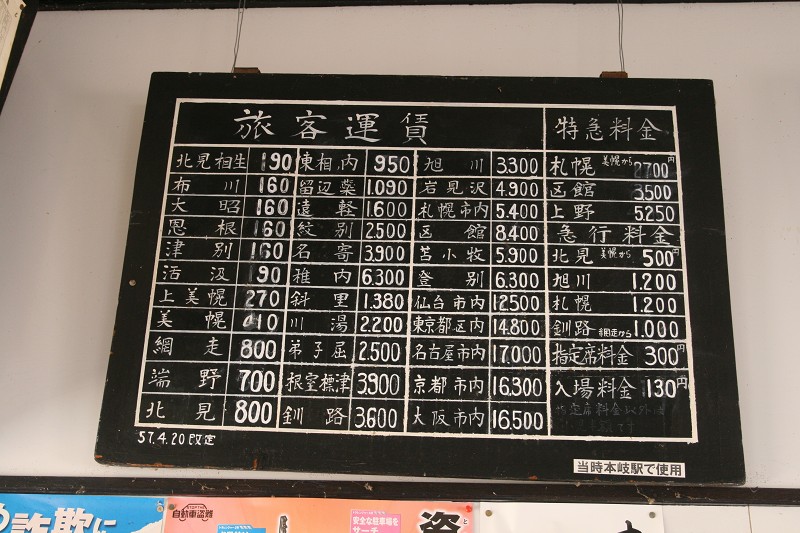 旅客運賃
北見相生 190 東相内 950 旭川 3.300
布川 160 留辺蘂 1.090 岩見沢 4.900
大昭 160 遠軽 1.600 札幌市内 5.400
恩根 160 紋別 2.500 函館 8.400
津別 160 名寄 3.900 苫小牧 5.900
活汲 190 稚内 6.300 登別 6.300
上美幌 270 斜里 1.380 仙台市内 12.500
美幌 410 川湯 2.200 東京都区内 14.800
網走 800 弟子屈 2.500 名古屋市内 17.000
端野 700 根室標津 3.900 京都市内 16.300
北見 800 釧路 3.600 大阪市内 16.500
特急料金
札幌 美幌から 2700円
函館 3500
上野 5250
急行料金
北見 美幌から 500円
旭川 1.200
札幌 1.200
釧路 網走から 1.000
指定席料金 300円
入場料金 130円
指定席料金以外は
57.4.20改定
当時本岐駅で使用
詐欺に
自動車盗難
安全な駐車場を
サーチ
盗